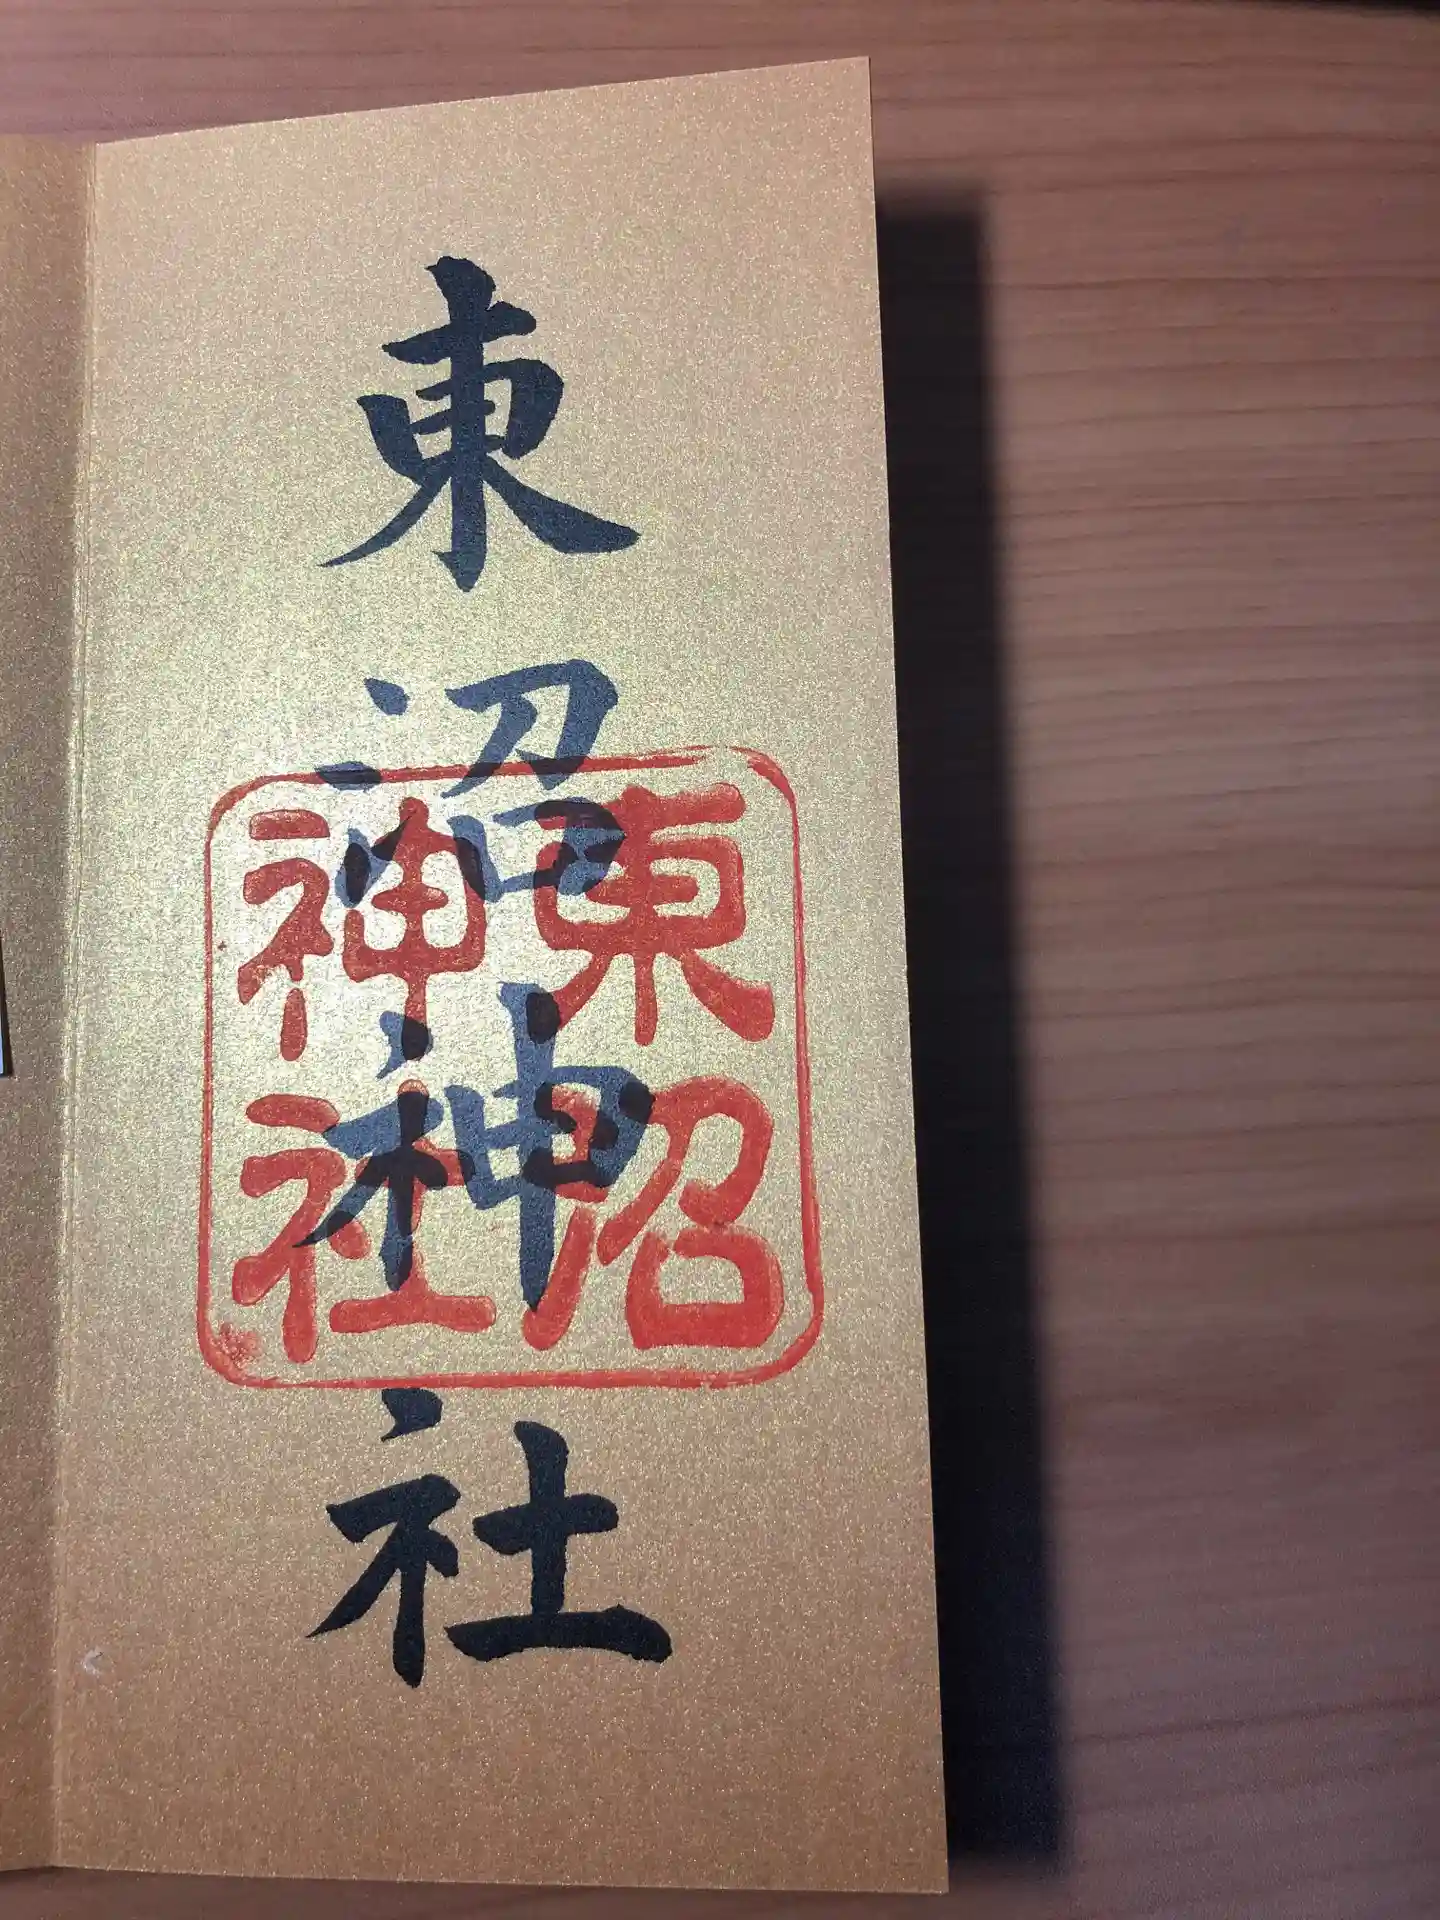 東沼神社
東沼
神社